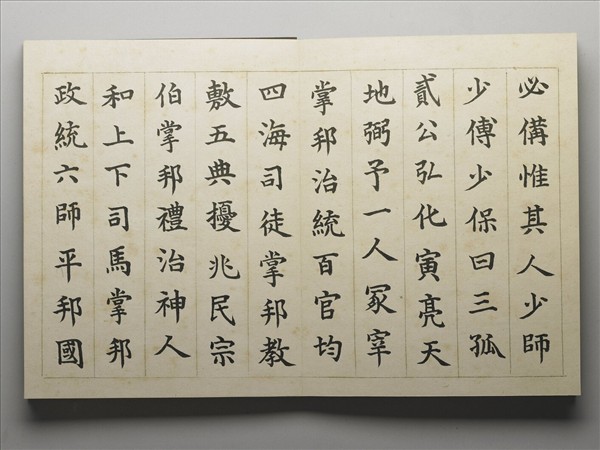 必備惟其人少師
少傅少保曰三孤
貳公弘化寅亮天
地弼予一人冢宰
掌邦治統百官均
四海司徒掌邦教
敷五典擾兆民宗
伯掌邦禮治神人
和上下司馬掌邦
政統六師平邦國